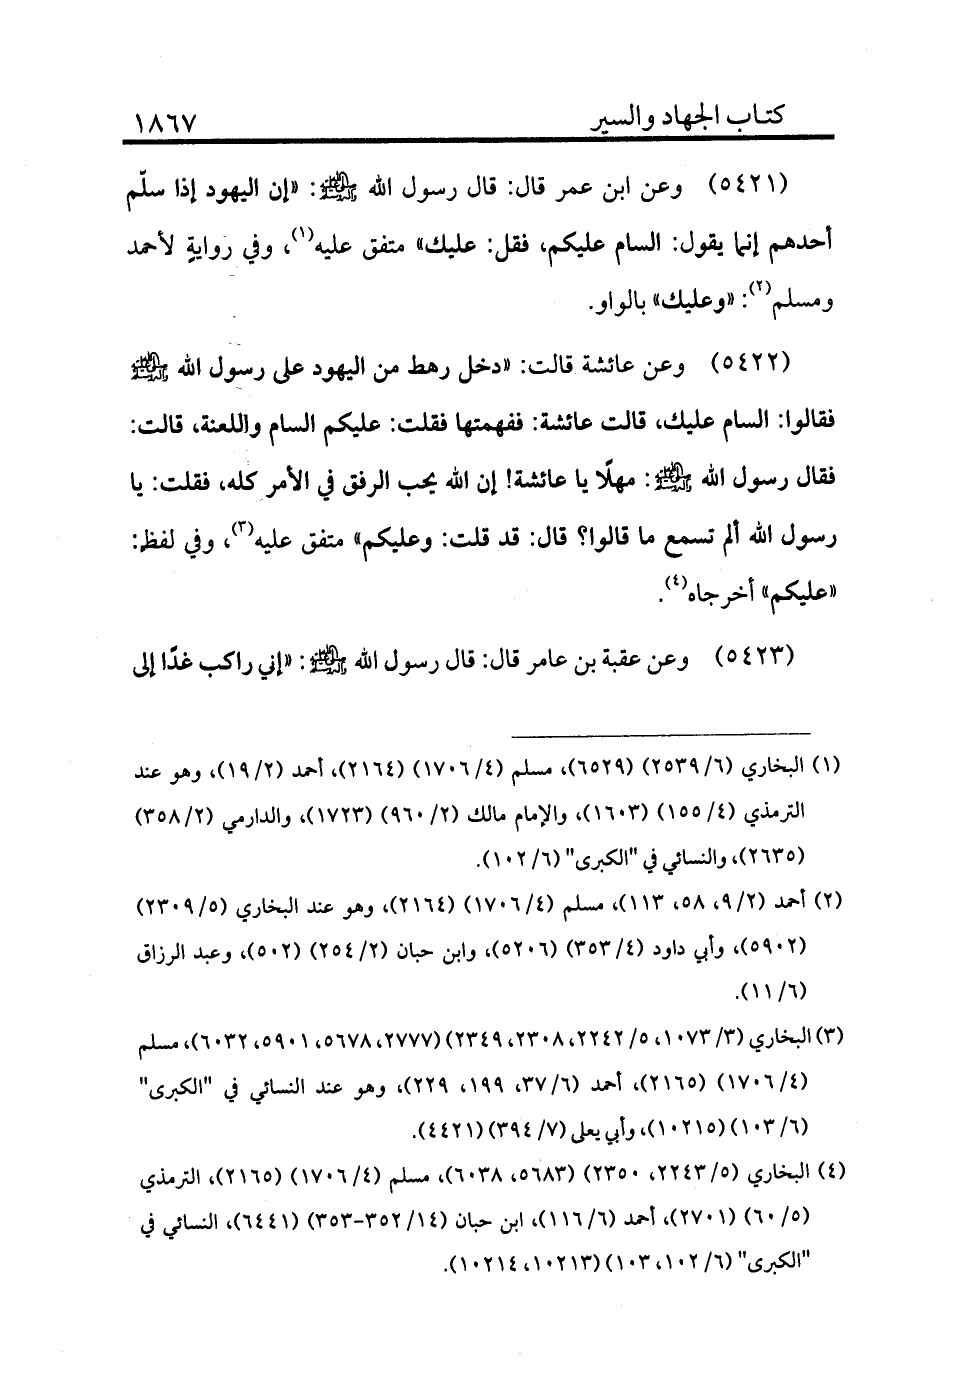 كتاب الجهاد والسير ١٨٦٧
(٥٤٢١) وعن ابن عمر قال: قال رسول الله ﷺ: «إن اليهود إذا سلّم
أحدهم إنما يقول: السام عليكم، فقل: عليك» متفق عليه(١)، وفي روايةٍ لأحمد
ومسلم(٢): «وعليك» بالواو.
(٥٤٢٢) وعن عائشة قالت: «دخل رهط من اليهود على رسول الله ﷺ
فقالوا: السام عليك، قالت عائشة: ففهمتها فقلت: عليكم السام واللعنة، قالت:
فقال رسول الله ﷺ: مهلًا يا عائشة! إن الله يحب الرفق في الأمر كله، فقلت: يا
رسول الله ألم تسمع ما قالوا؟ قال: قد قلت: وعليكم» متفق عليه(٣)، وفي لفظ:
«عليكم» أخرجاه(٤).
(٥٤٢٣) وعن عقبة بن عامر قال: قال رسول الله ﷺ: «إني راكب غدًا إلى
(١) البخاري (٦/ ٢٥٣٩) (٦٥٢٩)، مسلم (٤/ ١٧٠٦) (٢١٦٤)، أحمد (٢/ ١٩)، وهو عند
الترمذي (٤/ ١٥٥) (١٦٠٣)، والإمام مالك (٢/ ٩٦٠) (١٧٢٣)، والدارمي (٢/ ٣٥٨)
(٢٦٣٥)، والنسائي في "الكبرى" (٦/ ١٠٢).
(٢) أحمد (٢/ ٩، ٥٨، ١١٣)، مسلم (٤/ ١٧٠٦) (٢١٦٤)، وهو عند البخاري (٥/ ٢٣٠٩)
(٥٩٠٢)، وأبي داود (٤/ ٣٥٣) (٥٢٠٦)، وابن حبان (٢/ ٢٥٤) (٥٠٢)، وعبد الرزاق
(٦/ ١١).
(٣) البخاري (٣/ ١٠٧٣، ٥/ ٢٢٤٢، ٢٣٠٨، ٢٣٤٩) (٢٧٧٧، ٥٦٧٨، ٥٩٠١، ٦٠٣٢)، مسلم
(٤/ ١٧٠٦) (٢١٦٥)، أحمد (٦/ ٣٧، ١٩٩، ٢٢٩)، وهو عند النسائي في "الكبرى"
(٦/ ١٠٣) (١٠٢١٥)، وأبي يعلى (٧/ ٣٩٤) (٤٤٢١).
(٤) البخاري (٥/ ٢٢٤٣، ٢٣٥٠) (٥٦٨٣، ٦٠٣٨)، مسلم (٤/ ١٧٠٦) (٢١٦٥)، الترمذي
(٥/ ٦٠) (٢٧٠١)، أحمد (٦/ ١١٦)، ابن حبان (١٤/ ٣٥٢-٣٥٣) (٦٤٤١)، النسائي في
"الكبرى" (٦/ ١٠٢، ١٠٣) (١٠٢١٣، ١٠٢١٤).